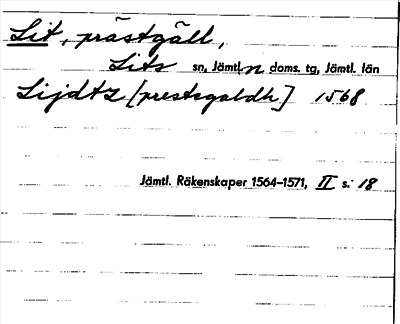 Lit, prästgäll,
Lits sn, Jämtl. n doms. tg, Jämtl. län
Lijdtz [prestegaldh] 1568
Jämtl. Räkenskaper 1564–1571, II s. 18